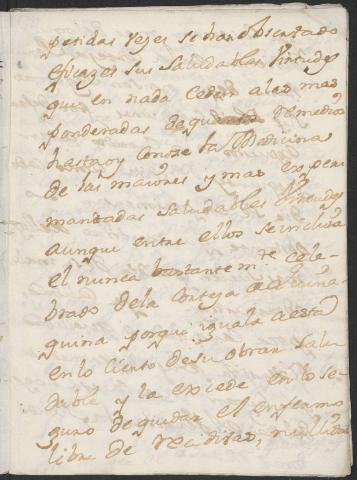 petidas vezes se han obserbado
eficazes sus saludables virtudes
que en nada ceden a las mas
ponderadas de quantos remedios
hasta oy conoze la Medicina
de las maiores y mas experi
mentadas saludables virtudes
aunque entre ellos se incluia
el nunca bastantem.te cele
brado de la Corteza de la quina
quina porque iguala a esta
en lo cierto de su obrar salu
dable y la excede en lo se
guro de quedar el enfermo
libre de recidivas,